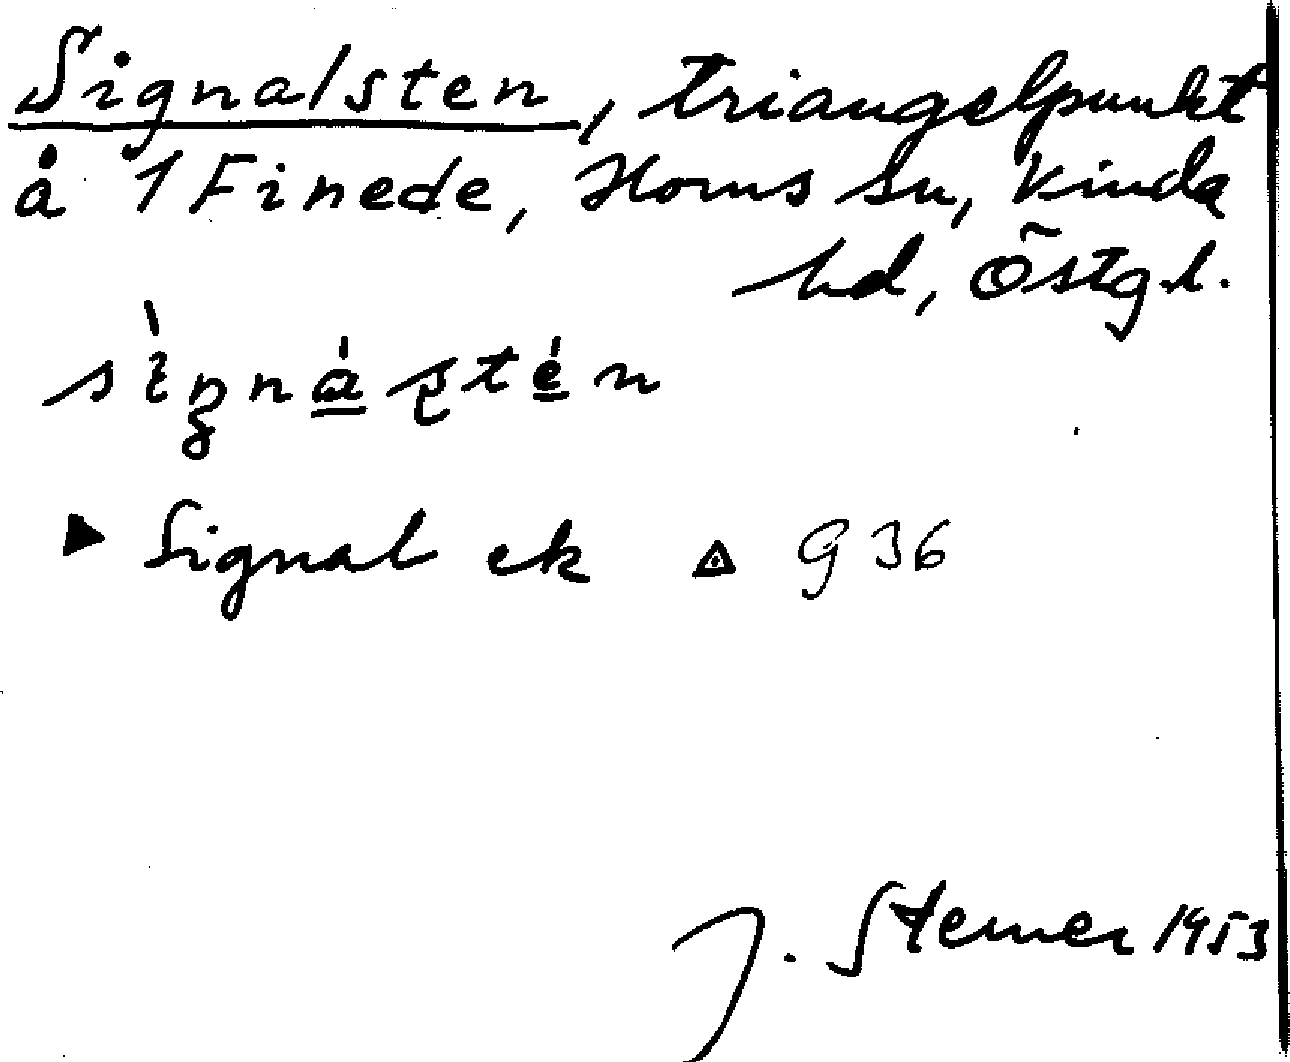 Signalsten, triangelpunkt
å 1 Finede, Horns sn, Kinda
hd, Östg.l.
▶ Signal ek ▵ G 36
J. Sterner 1953